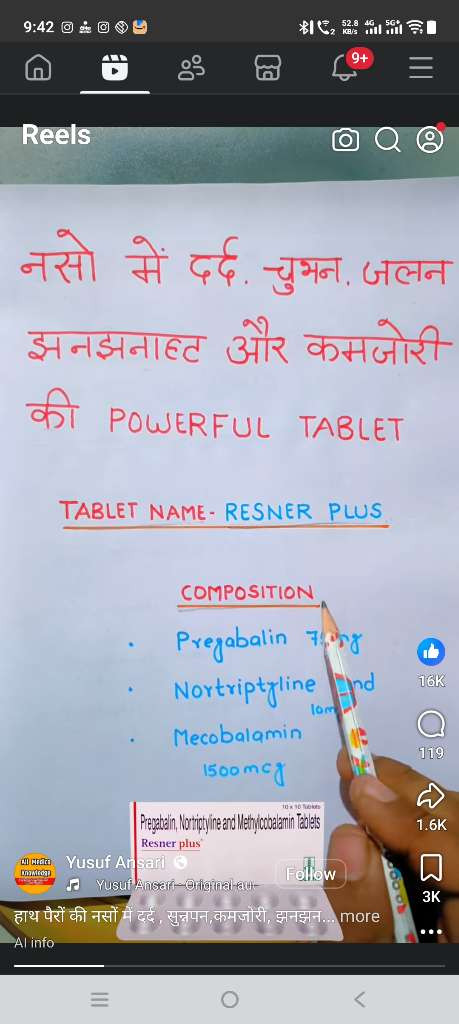 9:42
52.8 KB/s
4G
5G+
2
9+
Reels
नसो में दर्द. चुभन. जलन
झनझनाहट और कमजोरी
की POWERFUL TABLET
TABLET NAME- RESNER PLUS
COMPOSITION
Pregabalin
Nortriptyline
10m
Mecobalamin
1500mcg
16K
119
1.6K
3K
10 x 10 Tablets
Pregabalin, Nortriptyline and Methylcobalamin Tablets
Resner plus
All Medico Knowledge
Yusuf Ansari
Follow
Yusuf Ansari - Original au-
हाथ पैरों की नसों में दर्द , सुन्नपन,कमजोरी, झनझन... more
AI info